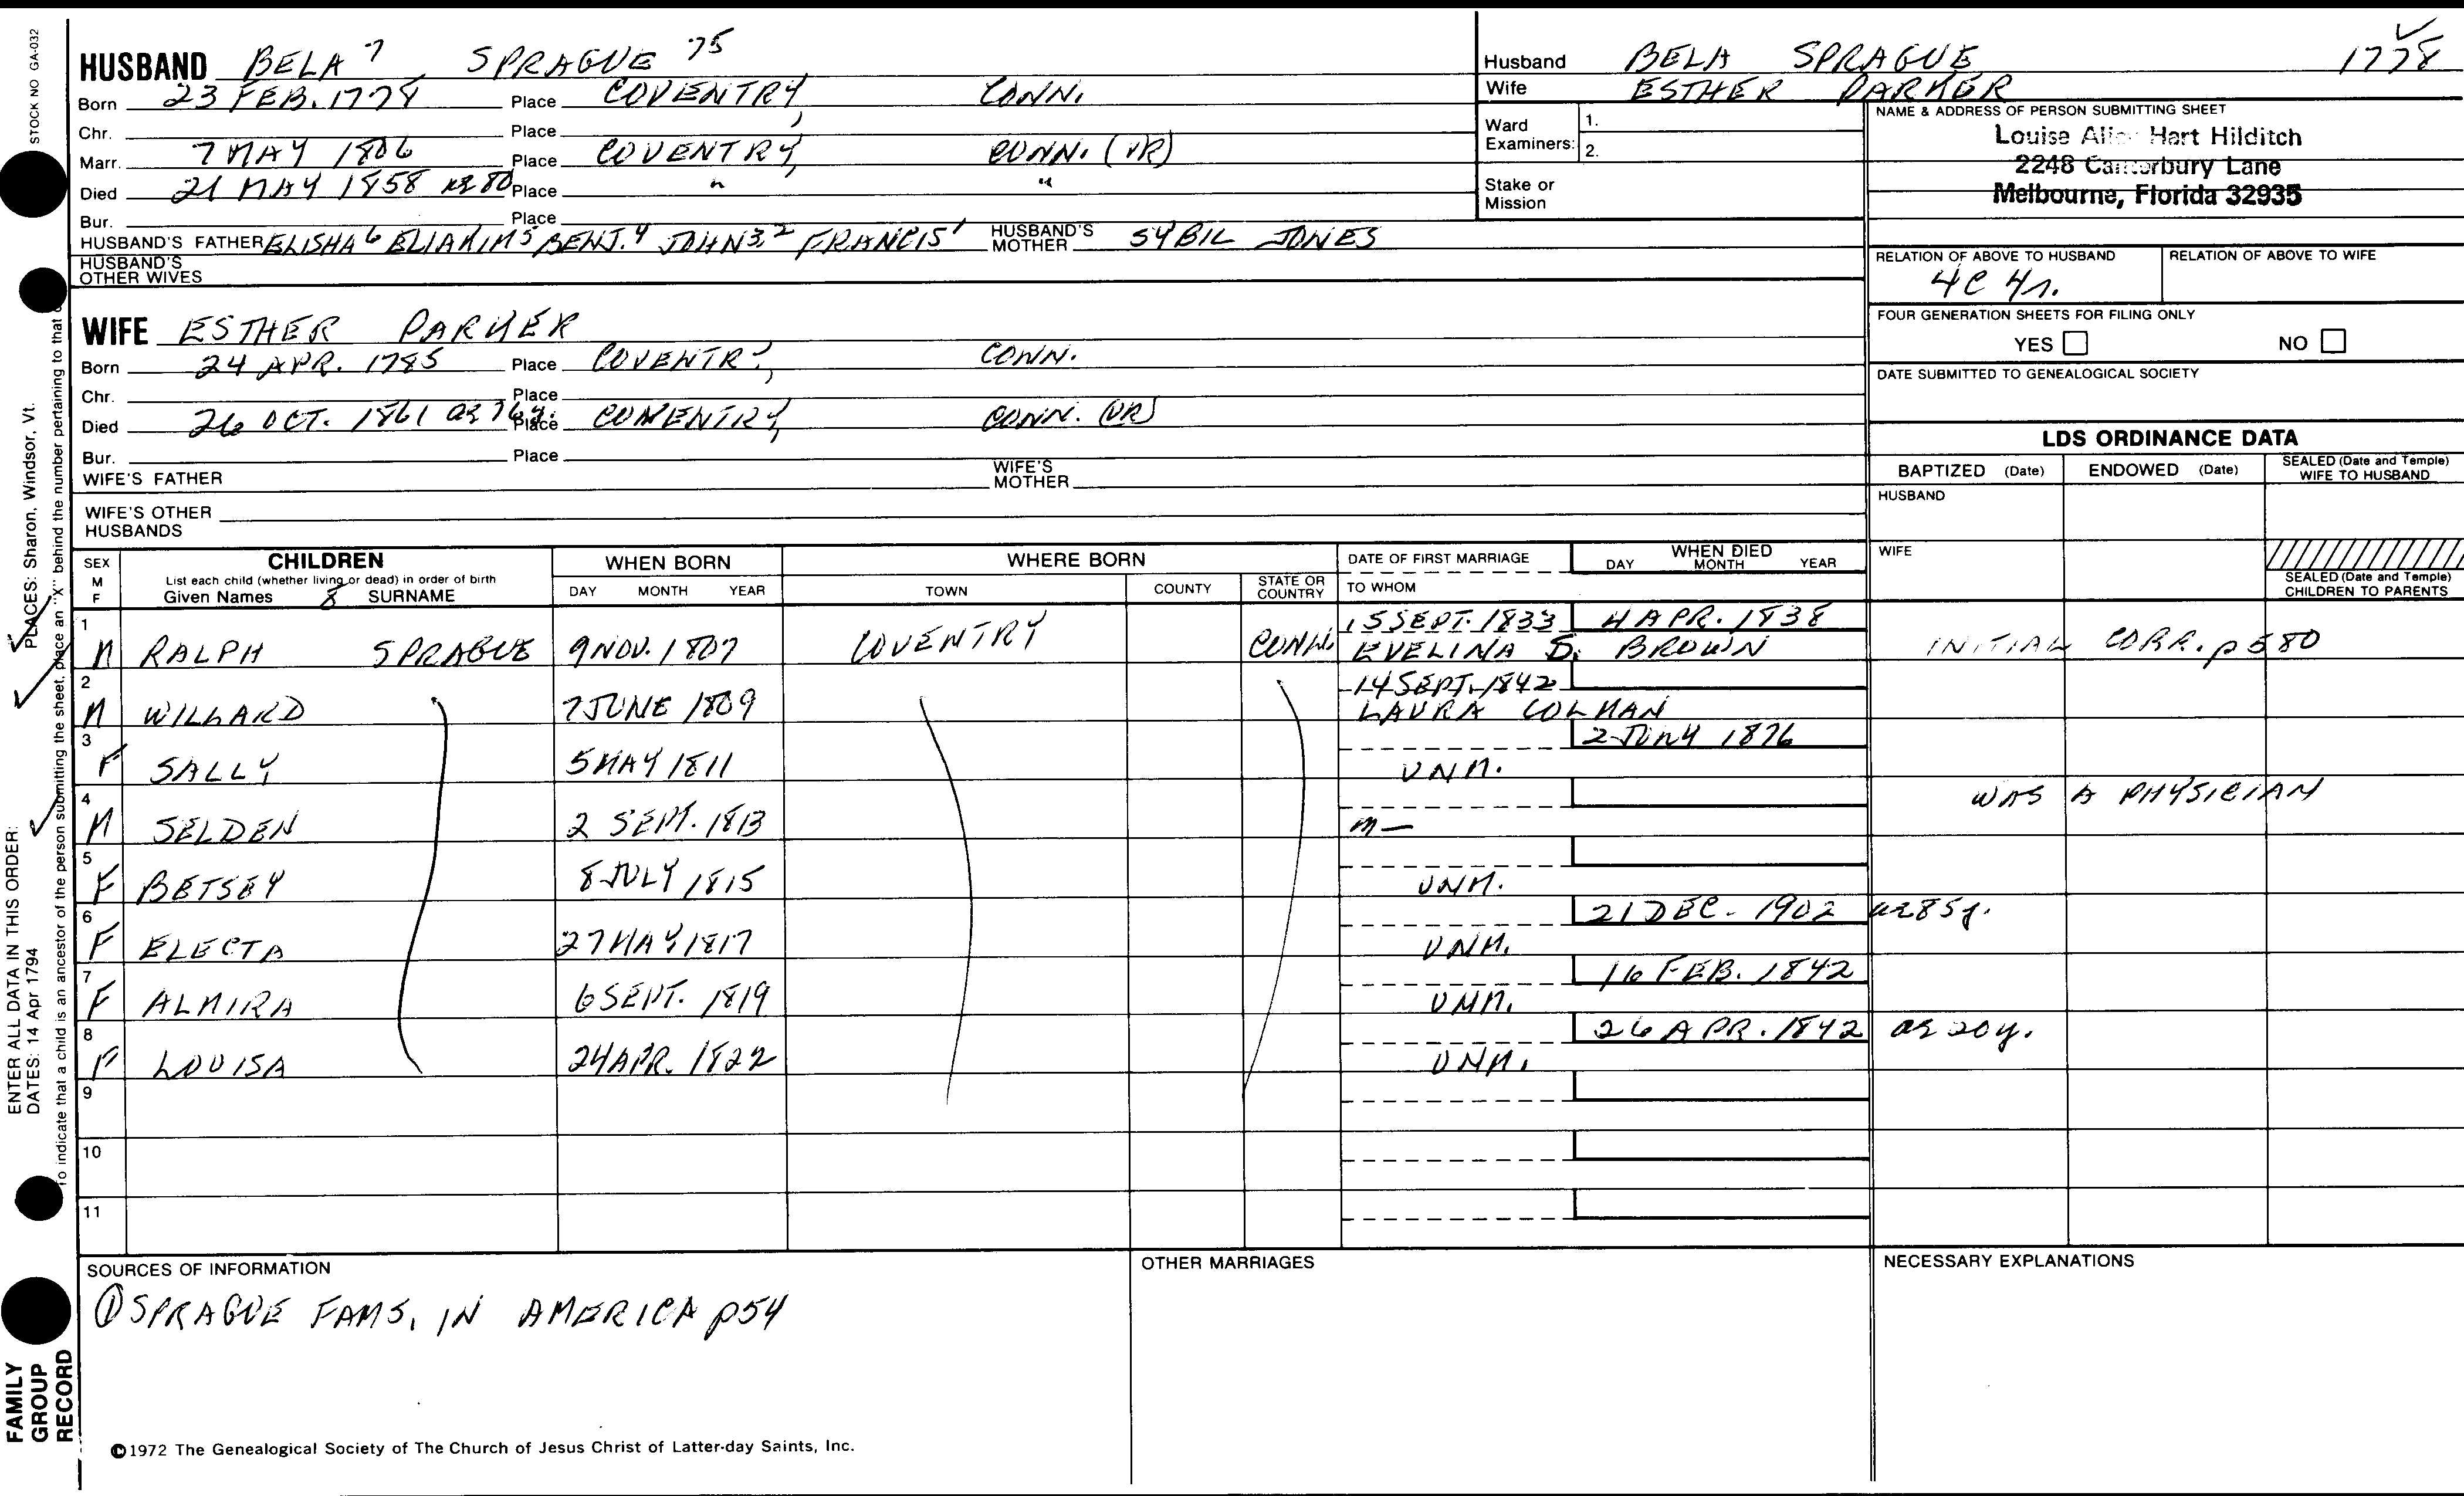 HUSBAND BELA 7 SPRAGUE 75
Born 23 FEB. 1778 Place COVENTRY, CONN.
Chr. Place
Marr. 7 MAY 1806 Place COVENTRY, CONN. (VR)
Died 21 MAY 1858 ae 80 Place " "
Bur. Place
HUSBAND'S FATHER ELISHA 6 ELIAKIM 5 BENJ. 4 JOHN 3,2 FRANCIS 1 HUSBAND'S MOTHER SYBIL JONES
HUSBAND'S OTHER WIVES
WIFE ESTHER PARKER
Born 24 APR. 1785 Place COVENTRY, CONN.
Chr. Place
Died 26 OCT. 1861 ae 76 y. Place COVENTRY, CONN. (VR)
Bur. Place
WIFE'S FATHER WIFE'S MOTHER
WIFE'S OTHER HUSBANDS
Husband BELA SPRAGUE 1778
Wife ESTHER PARKER
Ward Examiners: 1.
2.
Stake or Mission
NAME & ADDRESS OF PERSON SUBMITTING SHEET
Louise Hart Hilditch
2248 Canterbury Lane
Melbourne, Florida 32935
RELATION OF ABOVE TO HUSBAND RELATION OF ABOVE TO WIFE
4C 4r.
FOUR GENERATION SHEETS FOR FILING ONLY
YES NO
DATE SUBMITTED TO GENEALOGICAL SOCIETY
LDS ORDINANCE DATA
BAPTIZED (Date) ENDOWED (Date) SEALED (Date and Temple) WIFE TO HUSBAND
HUSBAND
WIFE
SEALED (Date and Temple) CHILDREN TO PARENTS
SEX M F CHILDREN WHEN BORN WHERE BORN DATE OF FIRST MARRIAGE WHEN DIED
List each child (whether living or dead) in order of birth
Given Names 8 SURNAME DAY MONTH YEAR TOWN COUNTY STATE OR COUNTRY TO WHOM DAY MONTH YEAR
1 M RALPH SPRAGUE 9 NOV. 1807 COVENTRY CONN. 15 SEPT. 1833 4 APR. 1838
EVELINA S. BROWN INITIAL CORR. p 580
2 M WILLARD 7 JUNE 1809 14 SEPT. 1842
LAURA COLMAN
3 F SALLY 5 MAY 1811 UNM. 2 1876
4 M SELDEN 2 SEPT. 1813 m— WAS A PHYSICIAN
5 F BETSEY 8 JULY 1815 UNM.
6 F ELECTA 27 MAY 1817 UNM. 21 DEC. 1902 ae 85 y.
7 F ALMIRA 6 SEPT. 1819 UNM. 16 FEB. 1842
8 F LOUISA 24 APR. 1822 UNM. 26 APR. 1842 ae 20 y.
9
10
11
SOURCES OF INFORMATION
① SPRAGUE FAMS. IN AMERICA p54
OTHER MARRIAGES
NECESSARY EXPLANATIONS
©1972 The Genealogical Society of The Church of Jesus Christ of Latter-day Saints, Inc.
STOCK NO GA-032
ENTER ALL DATA IN THIS ORDER: PLACES: Sharon, Windsor, Vt.
DATES: 14 Apr 1794
To indicate that a child is an ancestor of the person submitting the sheet, place an "X" behind the number pertaining to that
FAMILY
GROUP
RECORD